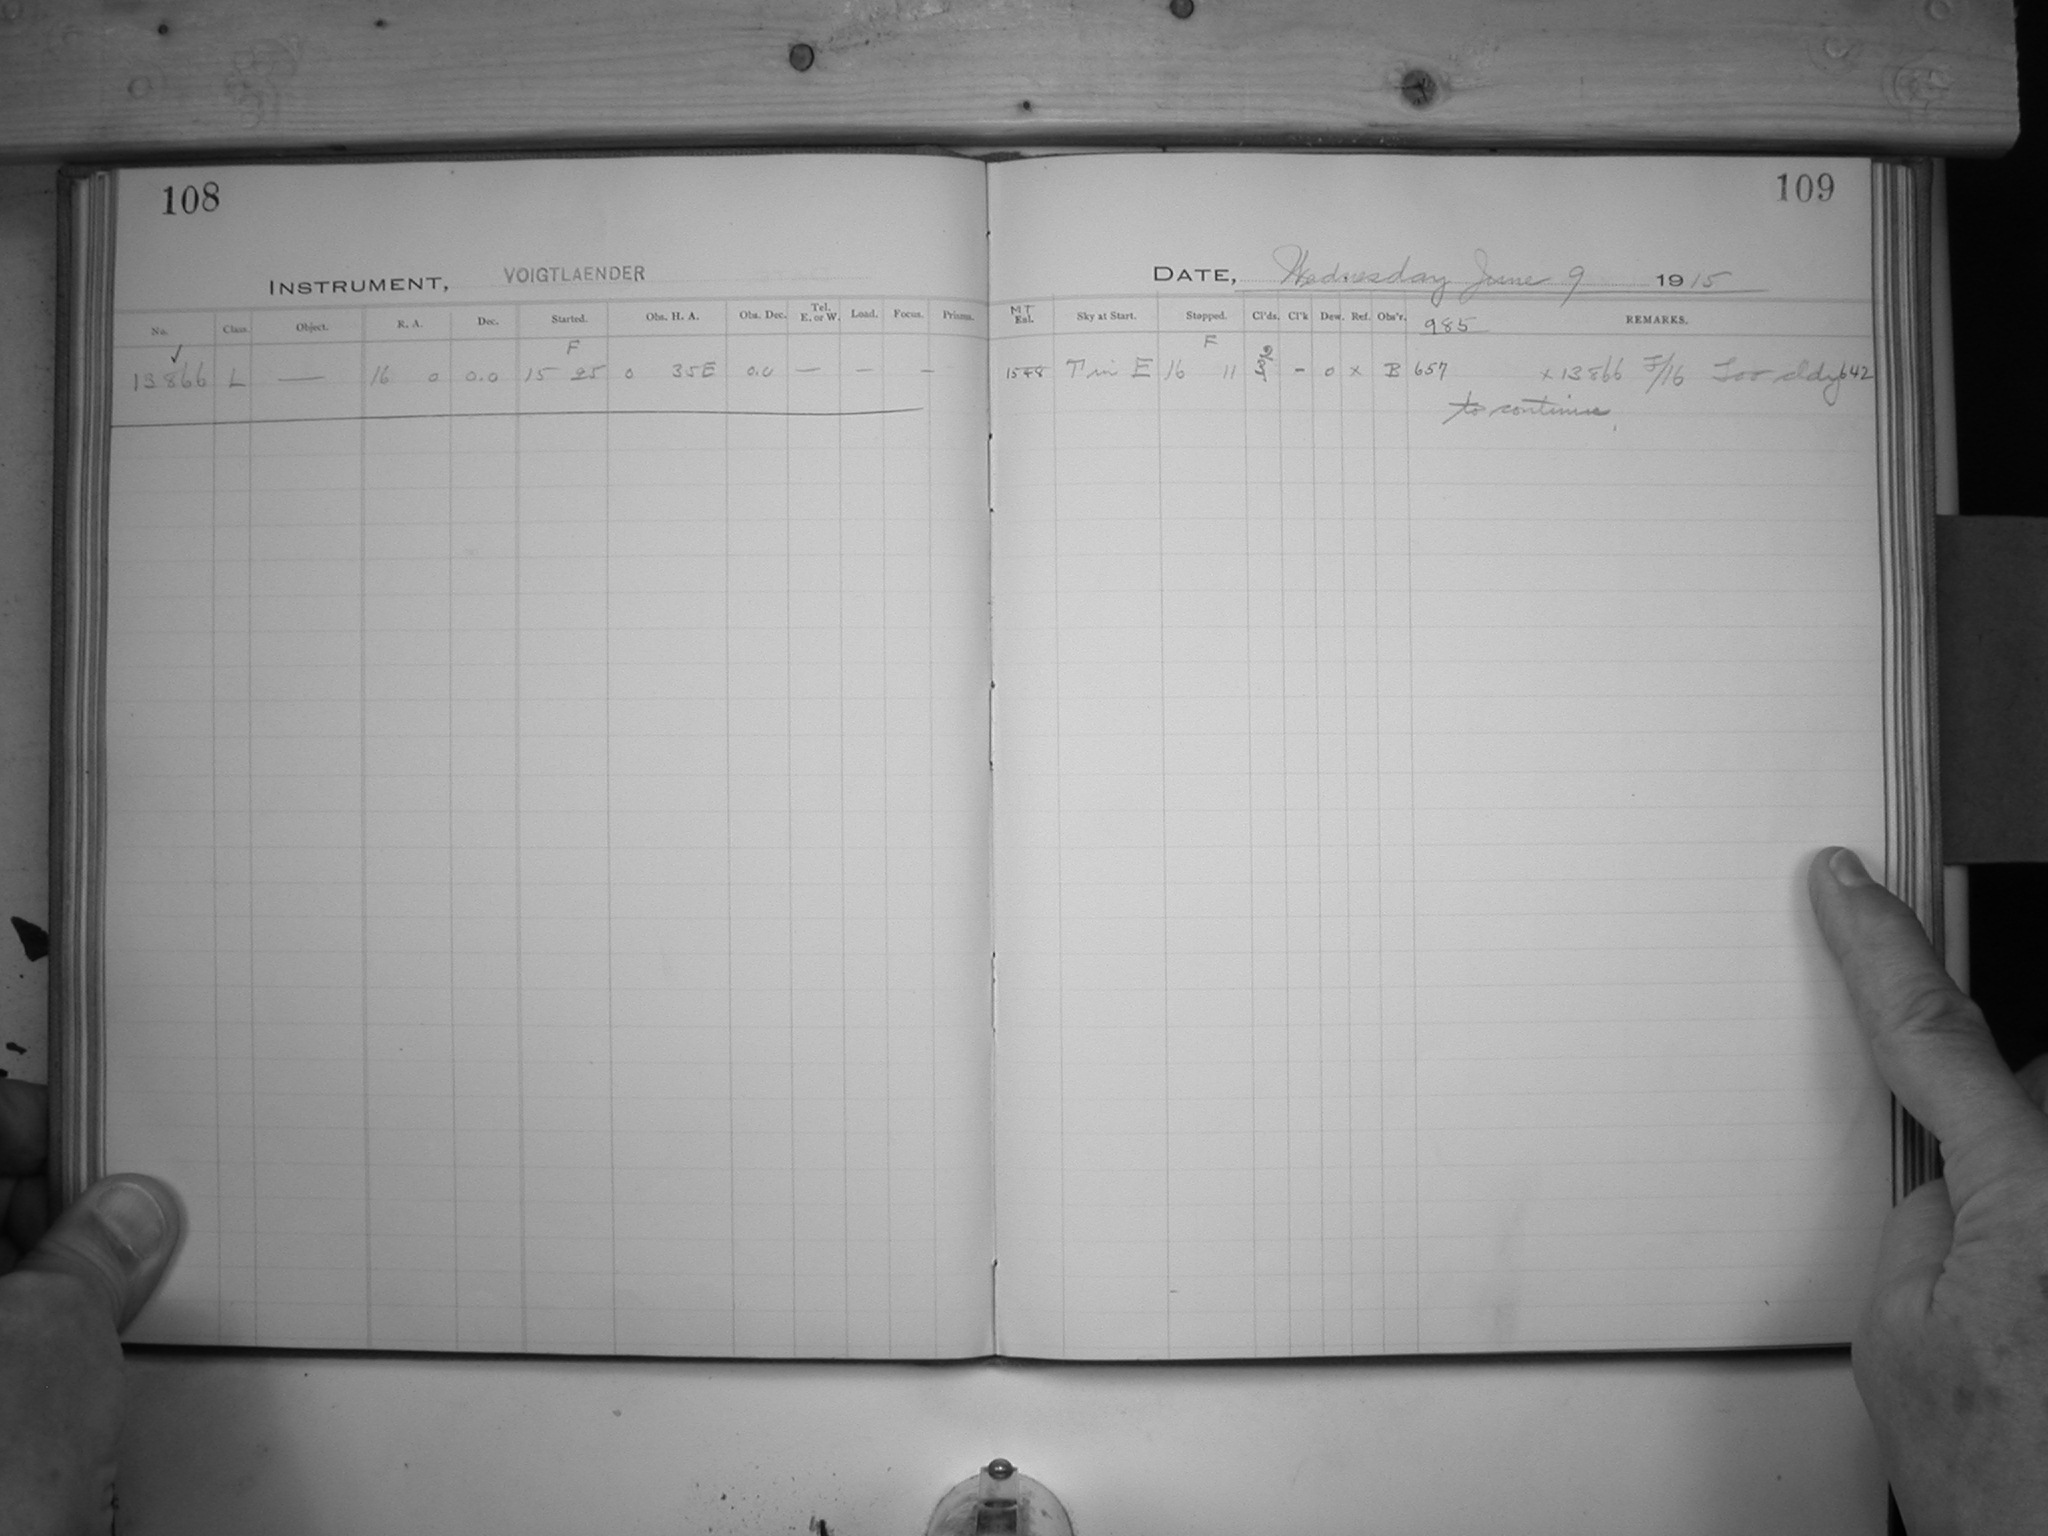 108
109
INSTRUMENT, VOIGTLAENDER
DATE, Wednesday June 9 1915
No. Class. Object. R. A. Dec. Started. Obs. H. A. Obs. Dec. Tel. E. or W. Load. Focus. Prisms.
MT Exl. Sky at Start. Stopped. Cl'ds. Cl'k Dew. Ref. Obs'r. 985 REMARKS.
F
F
✓
13866 L — 16 0 0.0 15 25 0 35E 0.0 — — –
T in E 16 11 – 0 x B 657 x 13866 F/16 Too cldy 642
to continue